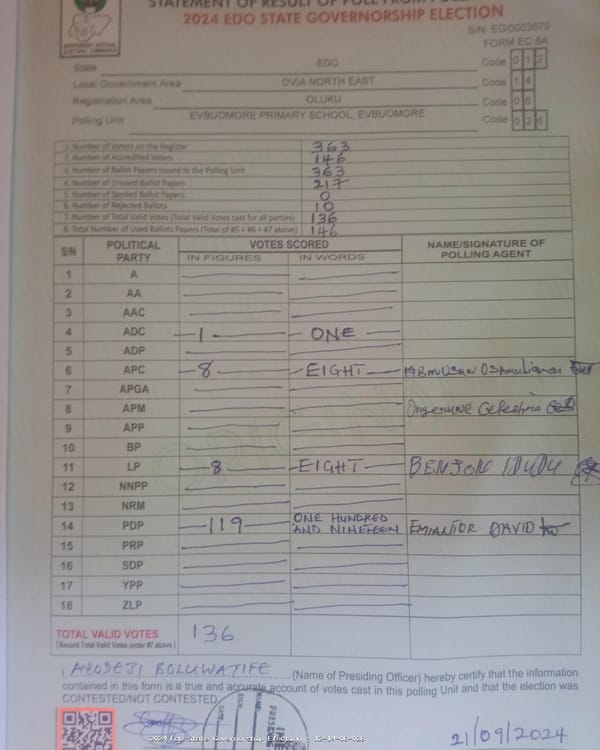 STATEMENT OF RESULT OF POLL FROM
2024 EDO STATE GOVERNORSHIP ELECTION
S/N: EG/0003679
FORM EC 8A
INEC
INDEPENDENT NATIONAL ELECTORAL COMMISSION
State EDO Code 0 1 2
Local Government Area OVIA NORTH EAST Code 1 4
Registration Area OLUKU Code 0 6
Polling Unit EVBUDMORE PRIMARY SCHOOL, EVBUOMORE Code 0 2 6
1. Number of Voters on the Register 363
2. Number of Accredited Voters 146
3. Number of Ballot Papers Issued to the Polling Unit 363
4. Number of Unused Ballot Papers 217
5. Number of Spoiled Ballot Papers 0
6. Number of Rejected Ballots 10
7. Number of Total Valid Votes (Total Valid Votes cast for all parties) 136
8. Total Number of Used Ballots Papers (Total of #5 + #6 + #7 above) 146
S/N POLITICAL PARTY VOTES SCORED NAME/SIGNATURE OF POLLING AGENT
IN FIGURES IN WORDS
1 A
2 AA
3 AAC
4 ADC 1 ONE
5 ADP
6 APC 8 EIGHT
7 APGA
8 APM
9 APP
10 BP
11 LP 8 EIGHT BENSON
12 NNPP
13 NRM
14 PDP 119 ONE HUNDRED AND NINETEEN DAVID
15 PRP
16 SDP
17 YPP
18 ZLP
TOTAL VALID VOTES 136
(Record Total Valid Votes under #7 above)
I, BOLUWATIFE (Name of Presiding Officer) hereby certify that the information
contained in this form is a true and accurate account of votes cast in this polling Unit and that the election was
CONTESTED/NOT CONTESTED
21/09/2024
2024 Edo State Governorship Election : 12-14-06-026